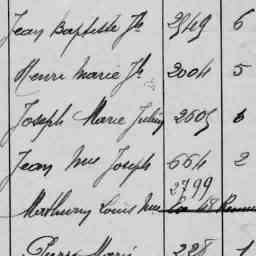 Jean Baptiste Jh 2949 6
Henri Marie Jh 2004 5
Joseph Marie 2605 6
Jean Mie Joseph 664 2
2799
Mathurin Louis Mie 18
Pierre Marie 228 1